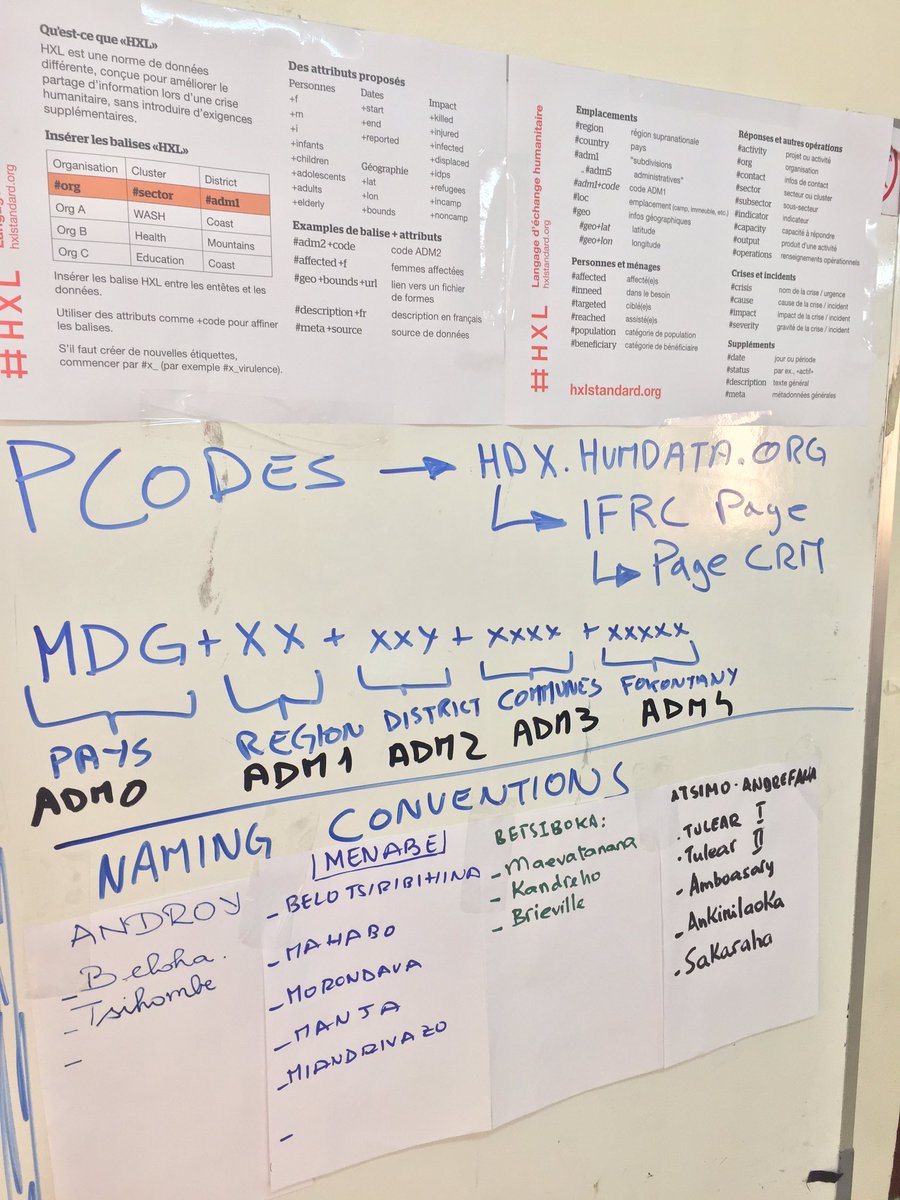 #HXL
hxlstandard.org
Qu'est-ce que «HXL»
HXL est une norme de données
différente, conçue pour améliorer le
partage d'information lors d'une crise
humanitaire, sans introduire d'exigences
supplémentaires.
Insérer les balises «HXL»
Organisation Cluster District
#org #sector #adm1
Org A WASH Coast
Org B Health Mountains
Org C Education Coast
Insérer les balise HXL entre les entêtes et les
données.
Utiliser des attributs comme +code pour affiner
les balises.
S'il faut créer de nouvelles étiquettes,
commencer par #x_ (par exemple #x_virulence).
Des attributs proposés
Personnes
+f
+m
+i
+infants
+children
+adolescents
+adults
+elderly
Dates
+start
+end
+reported
Géographie
+lat
+lon
+bounds
Impact
+killed
+injured
+infected
+displaced
+idps
+refugees
+incamp
+noncamp
Examples de balise + attributs
#adm2 +code code ADM2
#affected +f femmes affectées
#geo +bounds +url lien vers un fichier
de formes
#description +fr description en français
#meta +source source de données
#HXL
Langage d'échange humanitaire
hxlstandard.org
Emplacements
#region région supranationale
#country pays
#adm1 "subdivisions
..#adm5 administratives"
#adm1+code code ADM1
#loc emplacement (camp, immeuble, etc.)
#geo infos géographiques
#geo+lat latitude
#geo+lon longitude
Personnes et ménages
#affected affecté(e)s
#inneed dans le besoin
#targeted ciblé(e)s
#reached assisté(e)s
#population catégorie de population
#beneficiary catégorie de bénéficiaire
hxlstandard.org
Réponses et autres opérations
#activity projet ou activité
#org organisation
#contact infos de contact
#sector secteur ou cluster
#subsector sous-secteur
#indicator indicateur
#capacity capacité à répondre
#output produit d'une activité
#operations renseignements opérationnels
Crises et incidents
#crisis nom de la crise / urgence
#cause cause de la crise / incident
#impact impact de la crise / incident
#severity gravité de la crise / incident
Suppléments
#date jour ou période
#status par ex., «actif»
#description texte général
#meta métadonnées générales
PCODES → HDX.HUMDATA.ORG
IFRC Page
Page CRM
MDG + XX + XXY + XXXX + XXXXX
PAYS REGION DISTRICT COMMUNES FOKONTANY
ADM0 ADM1 ADM2 ADM3 ADM4
NAMING CONVENTIONS
ANDROY
- Beloha.
- Tsihombe
-
MENABE
- BELO TSIRIBIHINA
- MAHABO
- MORONDAVA
- MANJA
- MIANDRIVAZO
-
BETSIBOKA:
- Maevatanana
- Kandreho
- Brieville
ATSIMO-ANDREFANA
. TULEAR I
. Tulear II
- Amboasary
- Ankinilaoka
. Sakaraha